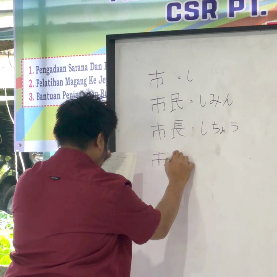 CSR PT.
1. Pengadaan Sarana Dan
2. Pelatihan Magang Ke Je
3. Bantuan
市 : し
市民 : しみん
市長 : しちょう
市